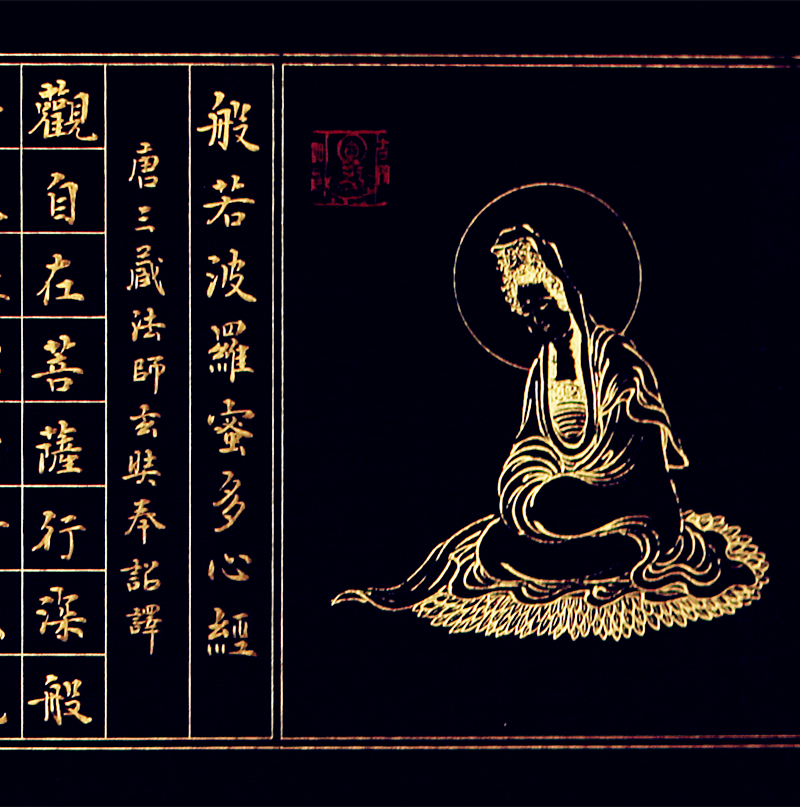 般若波羅蜜多心經
唐三藏法師玄奘奉詔譯
觀自在菩薩行深般